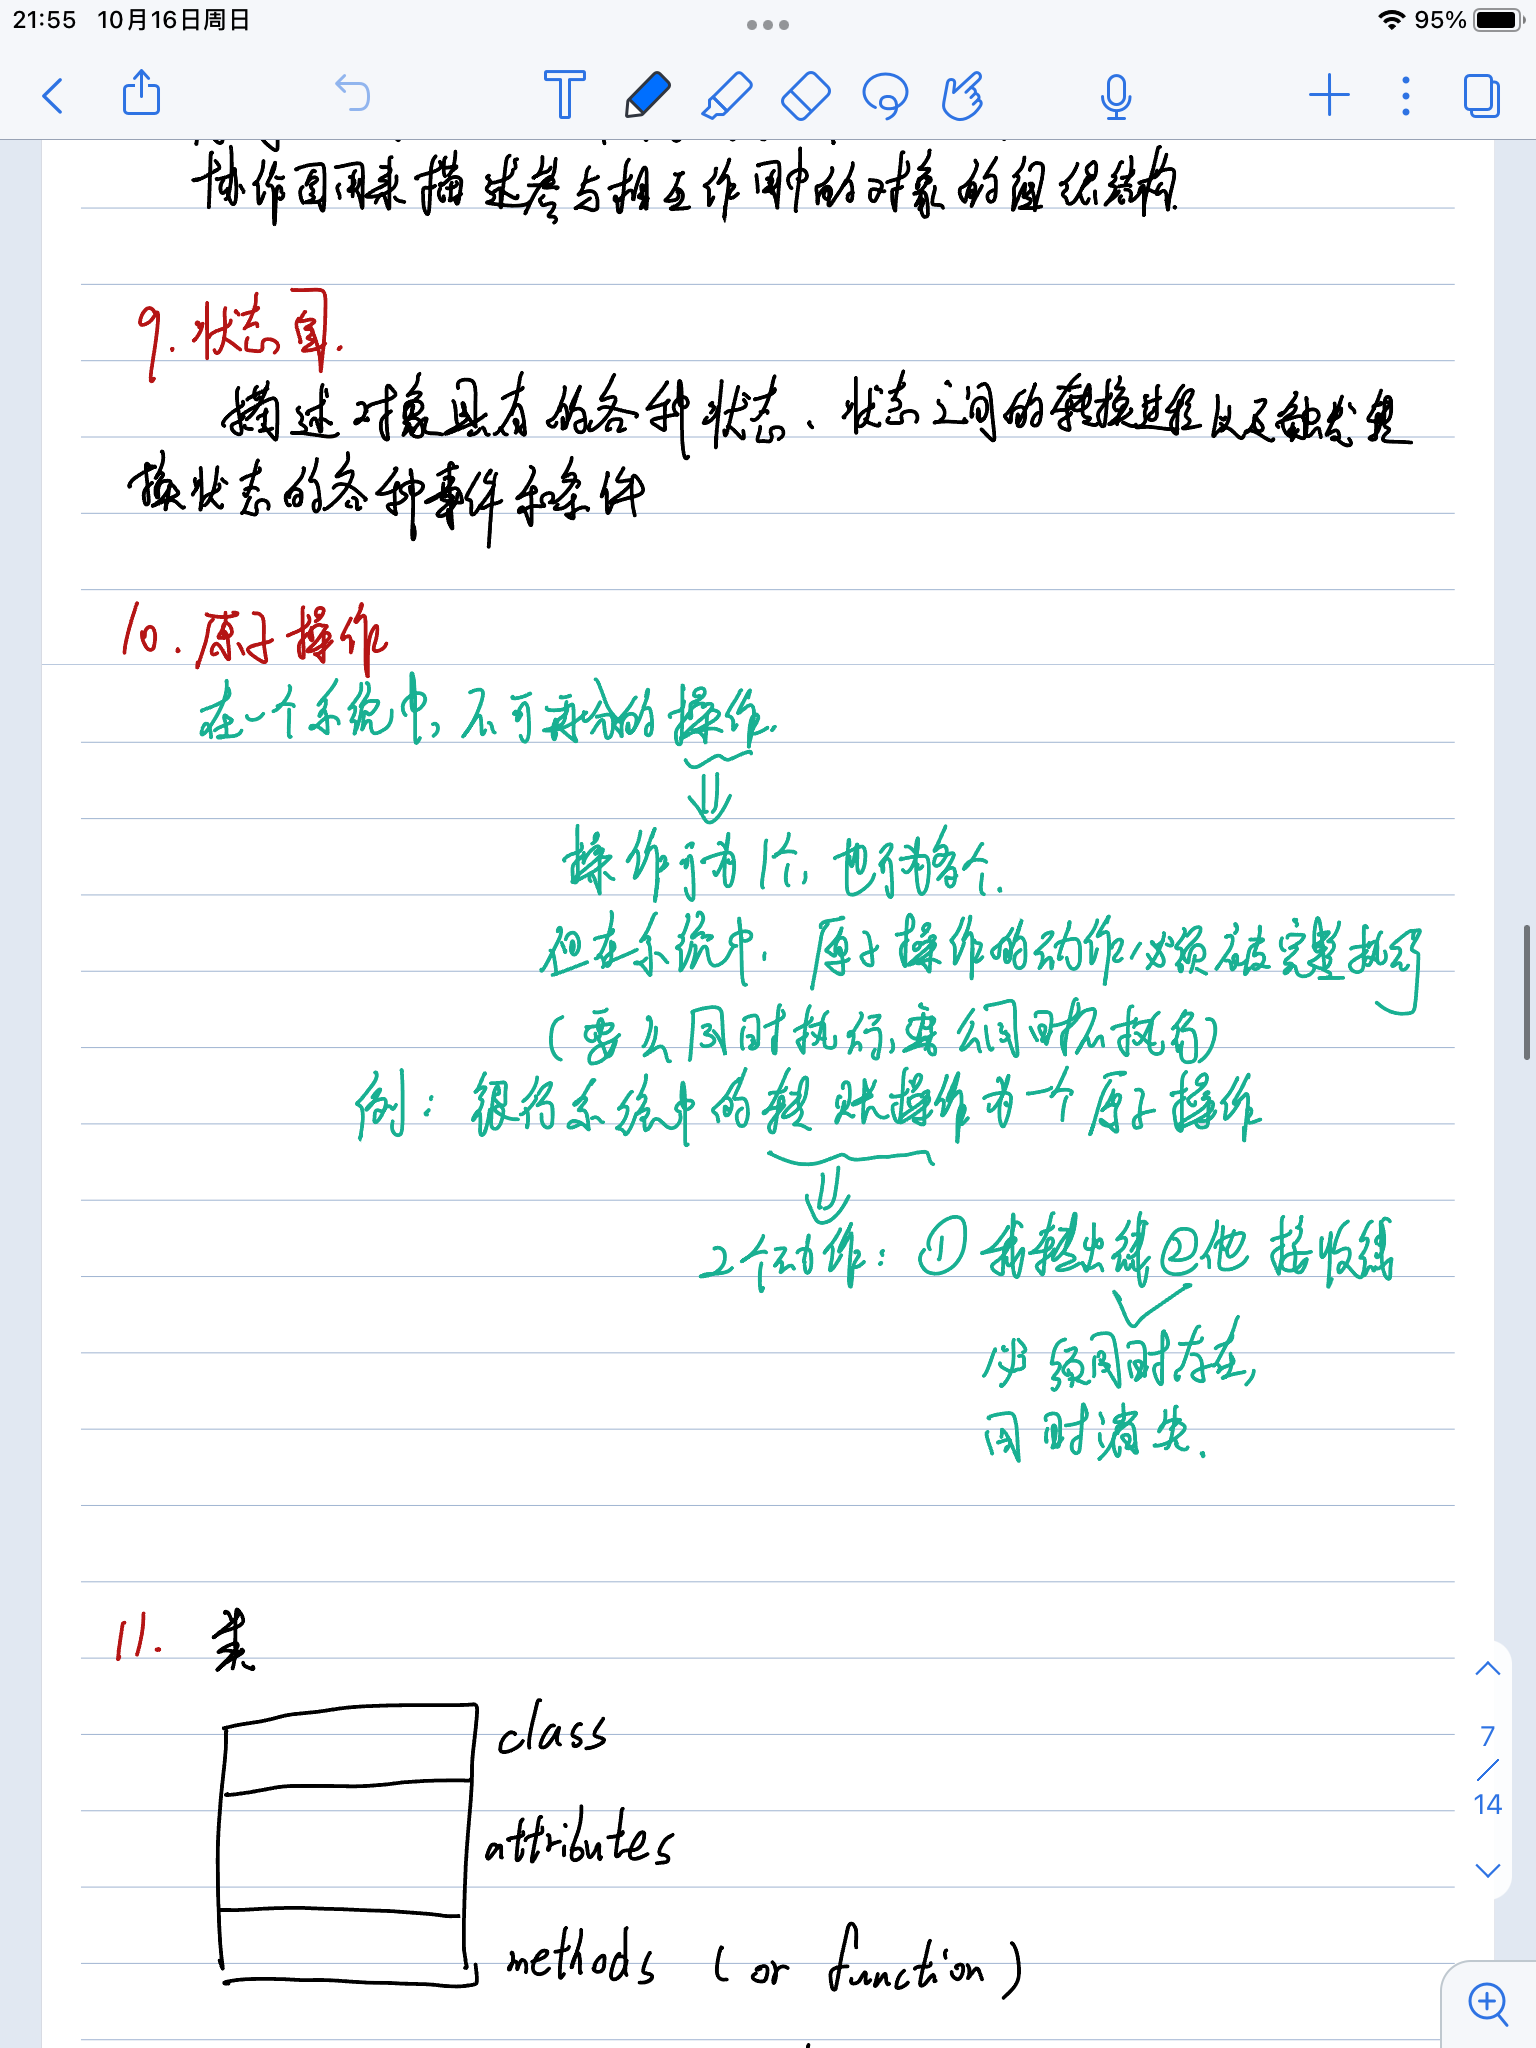 21:55 10月16日周日
95%
协作图用来描述参与相互作用中的对象的组织结构.
9. 状态图.
描述对象具有的各种状态、状态之间的转换过程以及触发
换状态的各种事件和条件
10. 原子操作
在一个系统中, 不可再分的操作.
操作可为1个, 也可为多个.
但在系统中, 原子操作的动作必须被完整执行
(要么同时执行, 要么同时不执行)
例: 银行系统中的转账操作为一个原子操作
2个动作: ① 我转出钱 ② 他接收钱
必须同时存在,
同时消失.
11. 类
class
attributes
methods (or function)
7
/
14